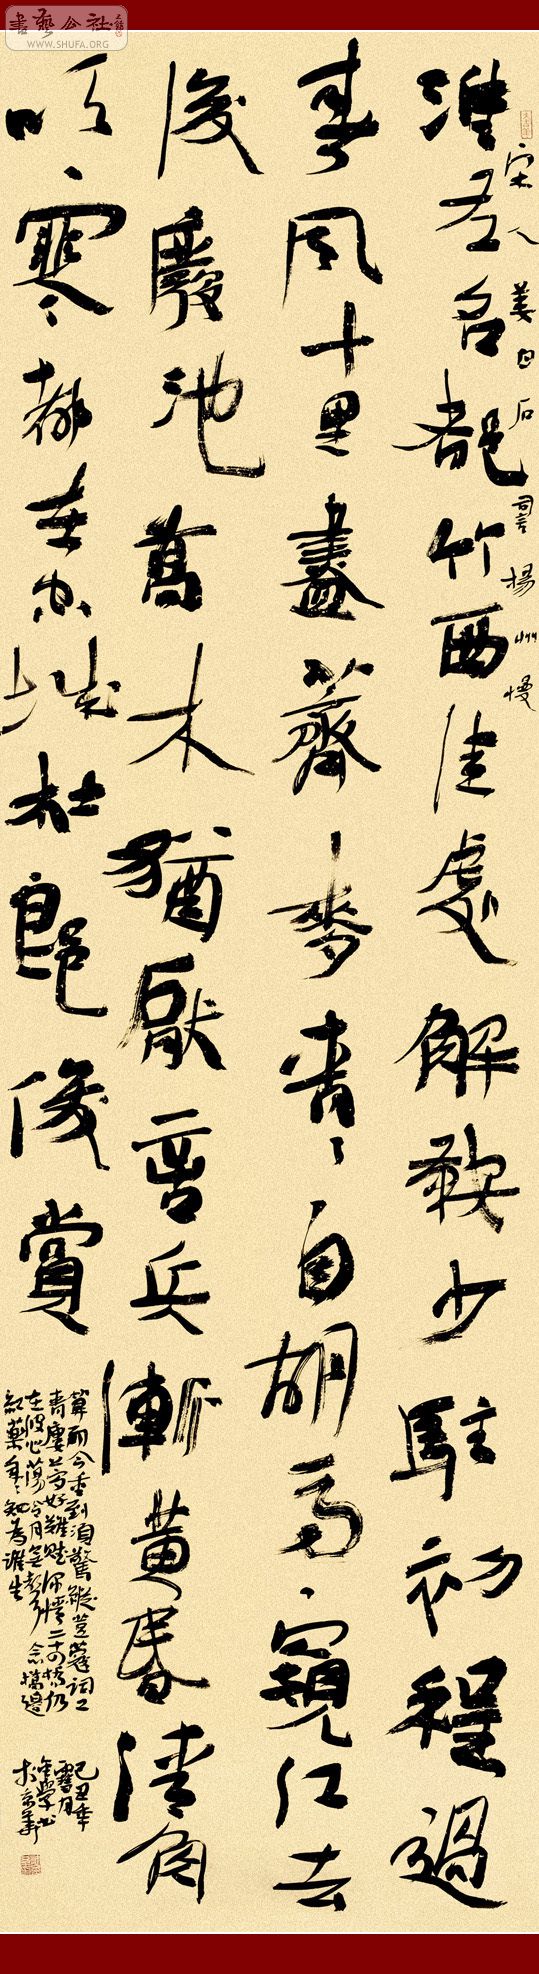 書藝公社
WWW.SHUFA.ORG
宋人姜白石詞揚州慢
淮左名都竹西佳處解鞍少駐初程過
春風十里盡薺麥青々自胡馬窺江去
後廢池喬木猶厭言兵漸黃昏清角
吹寒都在空城杜郎俊賞
算而今重到須驚縱荳蔻詞工
青廔夢好難賦深情二十四橋仍
在波心蕩冷月無聲念橋邊
紅藥年々知為誰生
己丑年
於京華